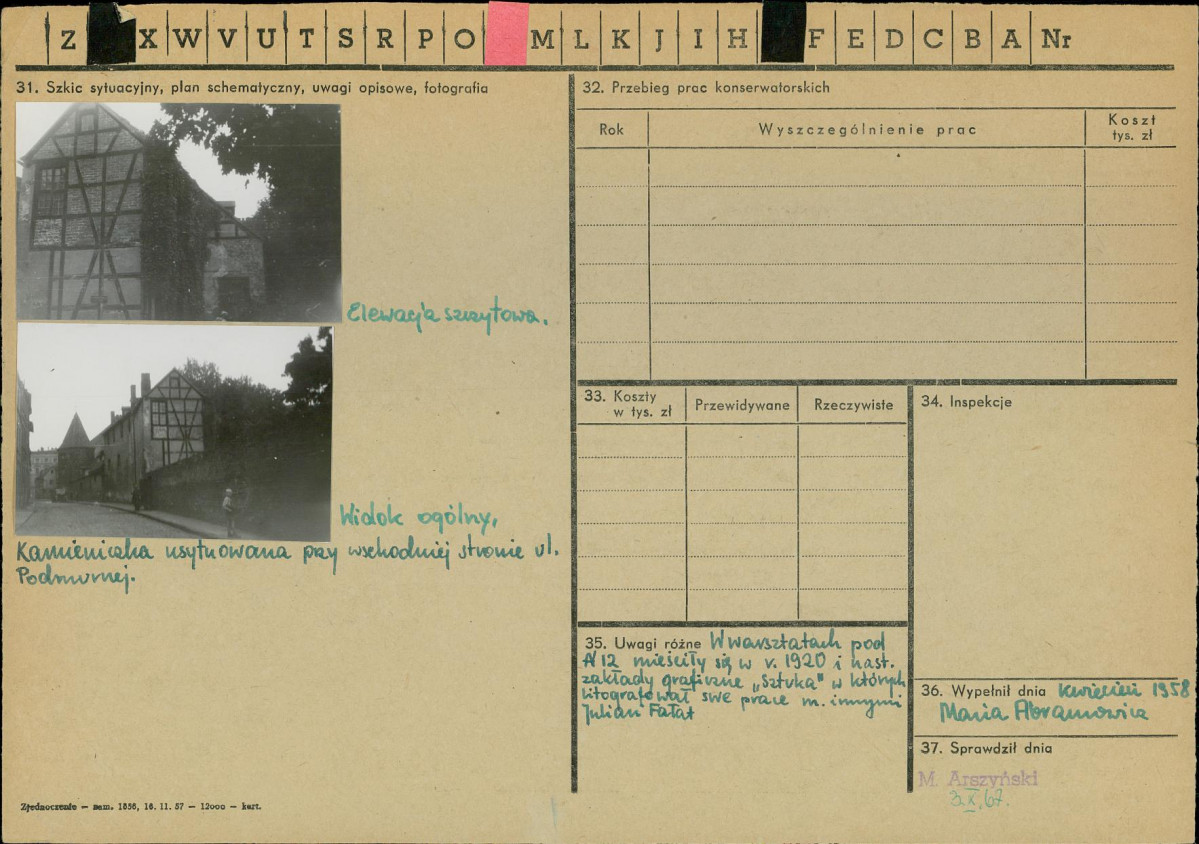 Z X W V U T S R P O M L K J I H F E D C B A Nr
31. Szkic sytuacyjny, plan schematyczny, uwagi opisowe, fotografia
Elewacja szczytowa.
Widok ogólny,
Kamieniczka usytuowana przy wschodniej stronie ul.
Podmurnej.
Zjednoczenie — zam. 1856, 16. 11. 57 — 12000 — kart.
32. Przebieg prac konserwatorskich
Rok
Wyszczególnienie prac
Koszt
tys. zł
33. Koszty
w tys. zł
Przewidywane
Rzeczywiste
34. Inspekcje
35. Uwagi różne W warsztatach pod
N 12 mieściły się w r. 1920 i nast.
zakłady graficzne „Sztuka" w których
litografował swe prace m. innymi
Julian Fałat
36. Wypełnił dnia kwiecień 1958
Maria Abramowicz
37. Sprawdził dnia
M. Arszyński
3.X.67.